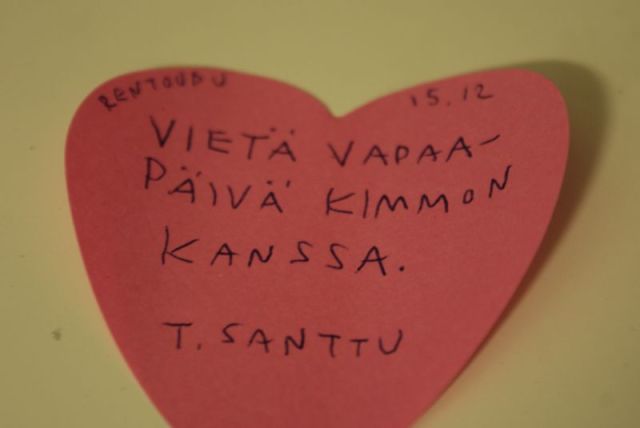 RENTOUDU 15.12
VIETÄ VAPAA-
PÄIVÄ KIMMON
KANSSA.
T. SANTTU